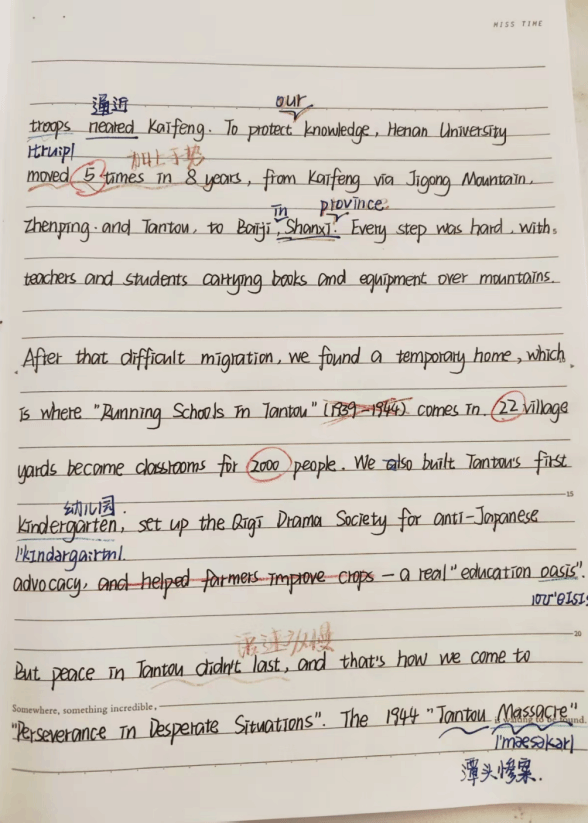 MISS TIME
逼近 our
troops neared Kaifeng. To protect knowledge, Henan University
/truːp/ 加上手势
moved 5 times in 8 years, from Kaifeng via Jigong Mountain,
in province
Zhenping and Tantou, to Baiji, Shanxi. Every step was hard, with
teachers and students carrying books and equipment over mountains.
After that difficult migration, we found a temporary home, which
is where "Running Schools in Tantou" (1939-1944) comes in. 22 village
yards become classrooms for 2000 people. We also built Tantou's first
15
幼儿园
kindergarten, set up the Qiqi Drama Society for anti-Japanese
/ˈkɪndərɡɑːrtn/
advocacy, and helped farmers improve crops — a real "education oasis".
/oʊˈeɪsɪs/
20
语速放慢
But peace in Tantou didn't last, and that's how we come to
Somewhere, something incredible,
is waiting to be found.
"Perseverance in Desperate Situations". The 1944 "Tantou Massacre"
/ˈmæsəkər/
潭头惨案.